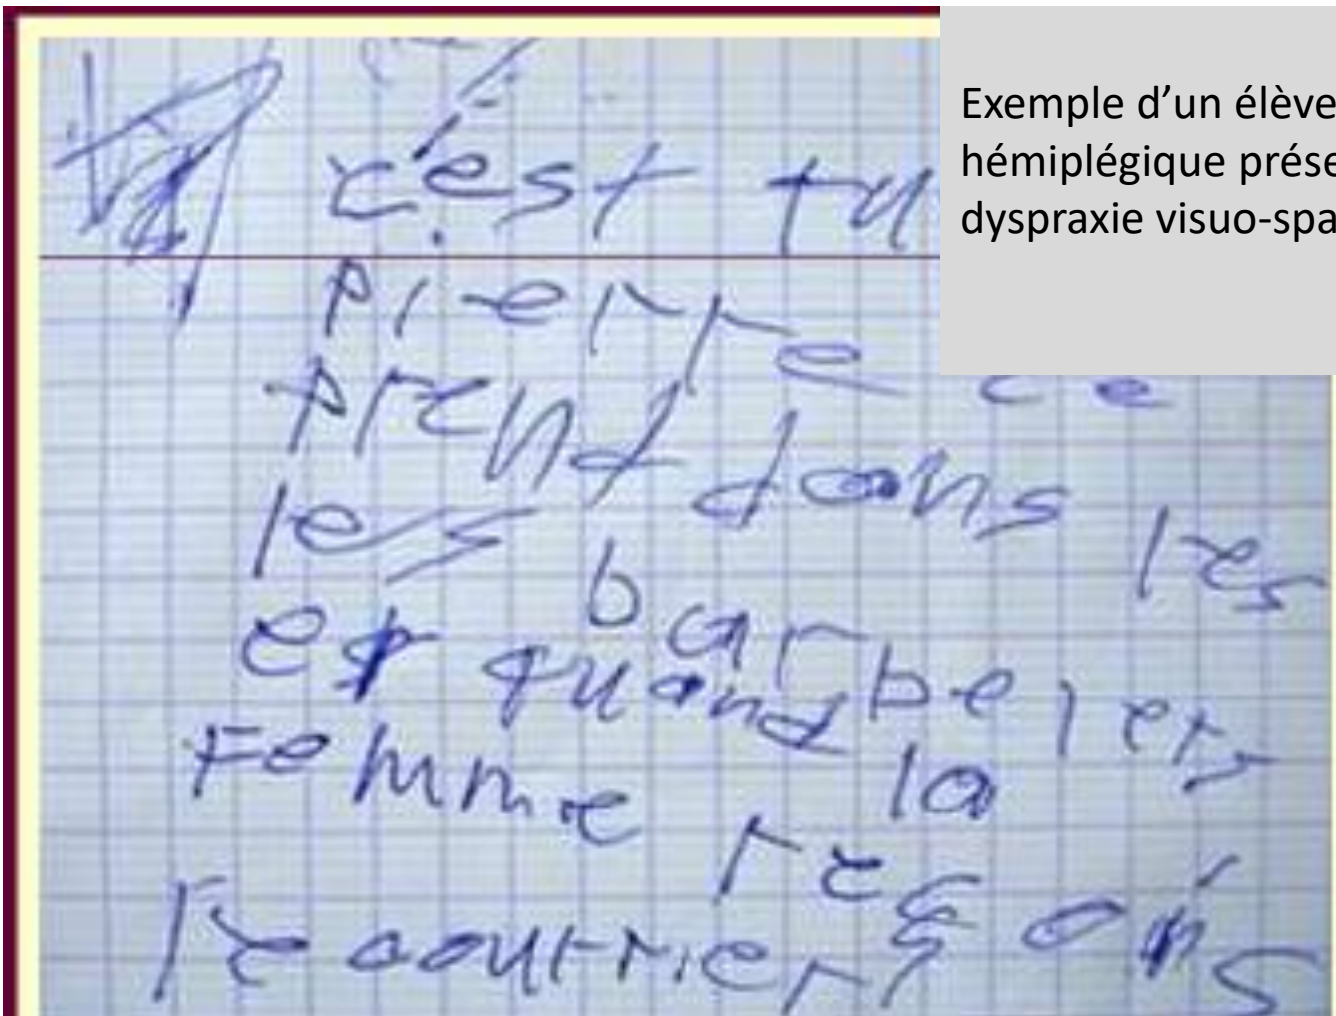 Exemple d’un élève
hémiplégique prése
dyspraxie visuo-spa
c'est tu
Pierre ce
prend dans les
les barbelers
et quand la
Femme reçois
le courriers